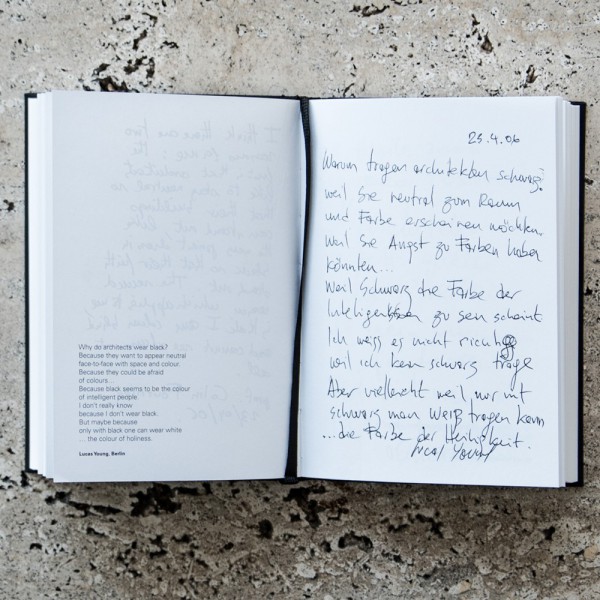 Why do architects wear black?
Because they want to appear neutral
face-to-face with space and colour.
Because they could be afraid
of colours ...
Because black seems to be the colour
of intelligent people.
I don't really know
because I don't wear black.
But maybe because
only with black one can wear white
... the colour of holiness.
Lucas Young, Berlin
23.4.06
Warum tragen architekten schwarz?
weil Sie neutral zum Raum
und Farbe erscheinen möchten.
Weil Sie Angst zu Farben haben
könnten...
Weil Schwarz die Farbe der
zu sein scheint
Ich weiss es nicht
weil ich kein schwarz trage
Aber vielleicht weil nur mit
schwarz man Weiß tragen kann
...die Farbe der Heiligkeit.